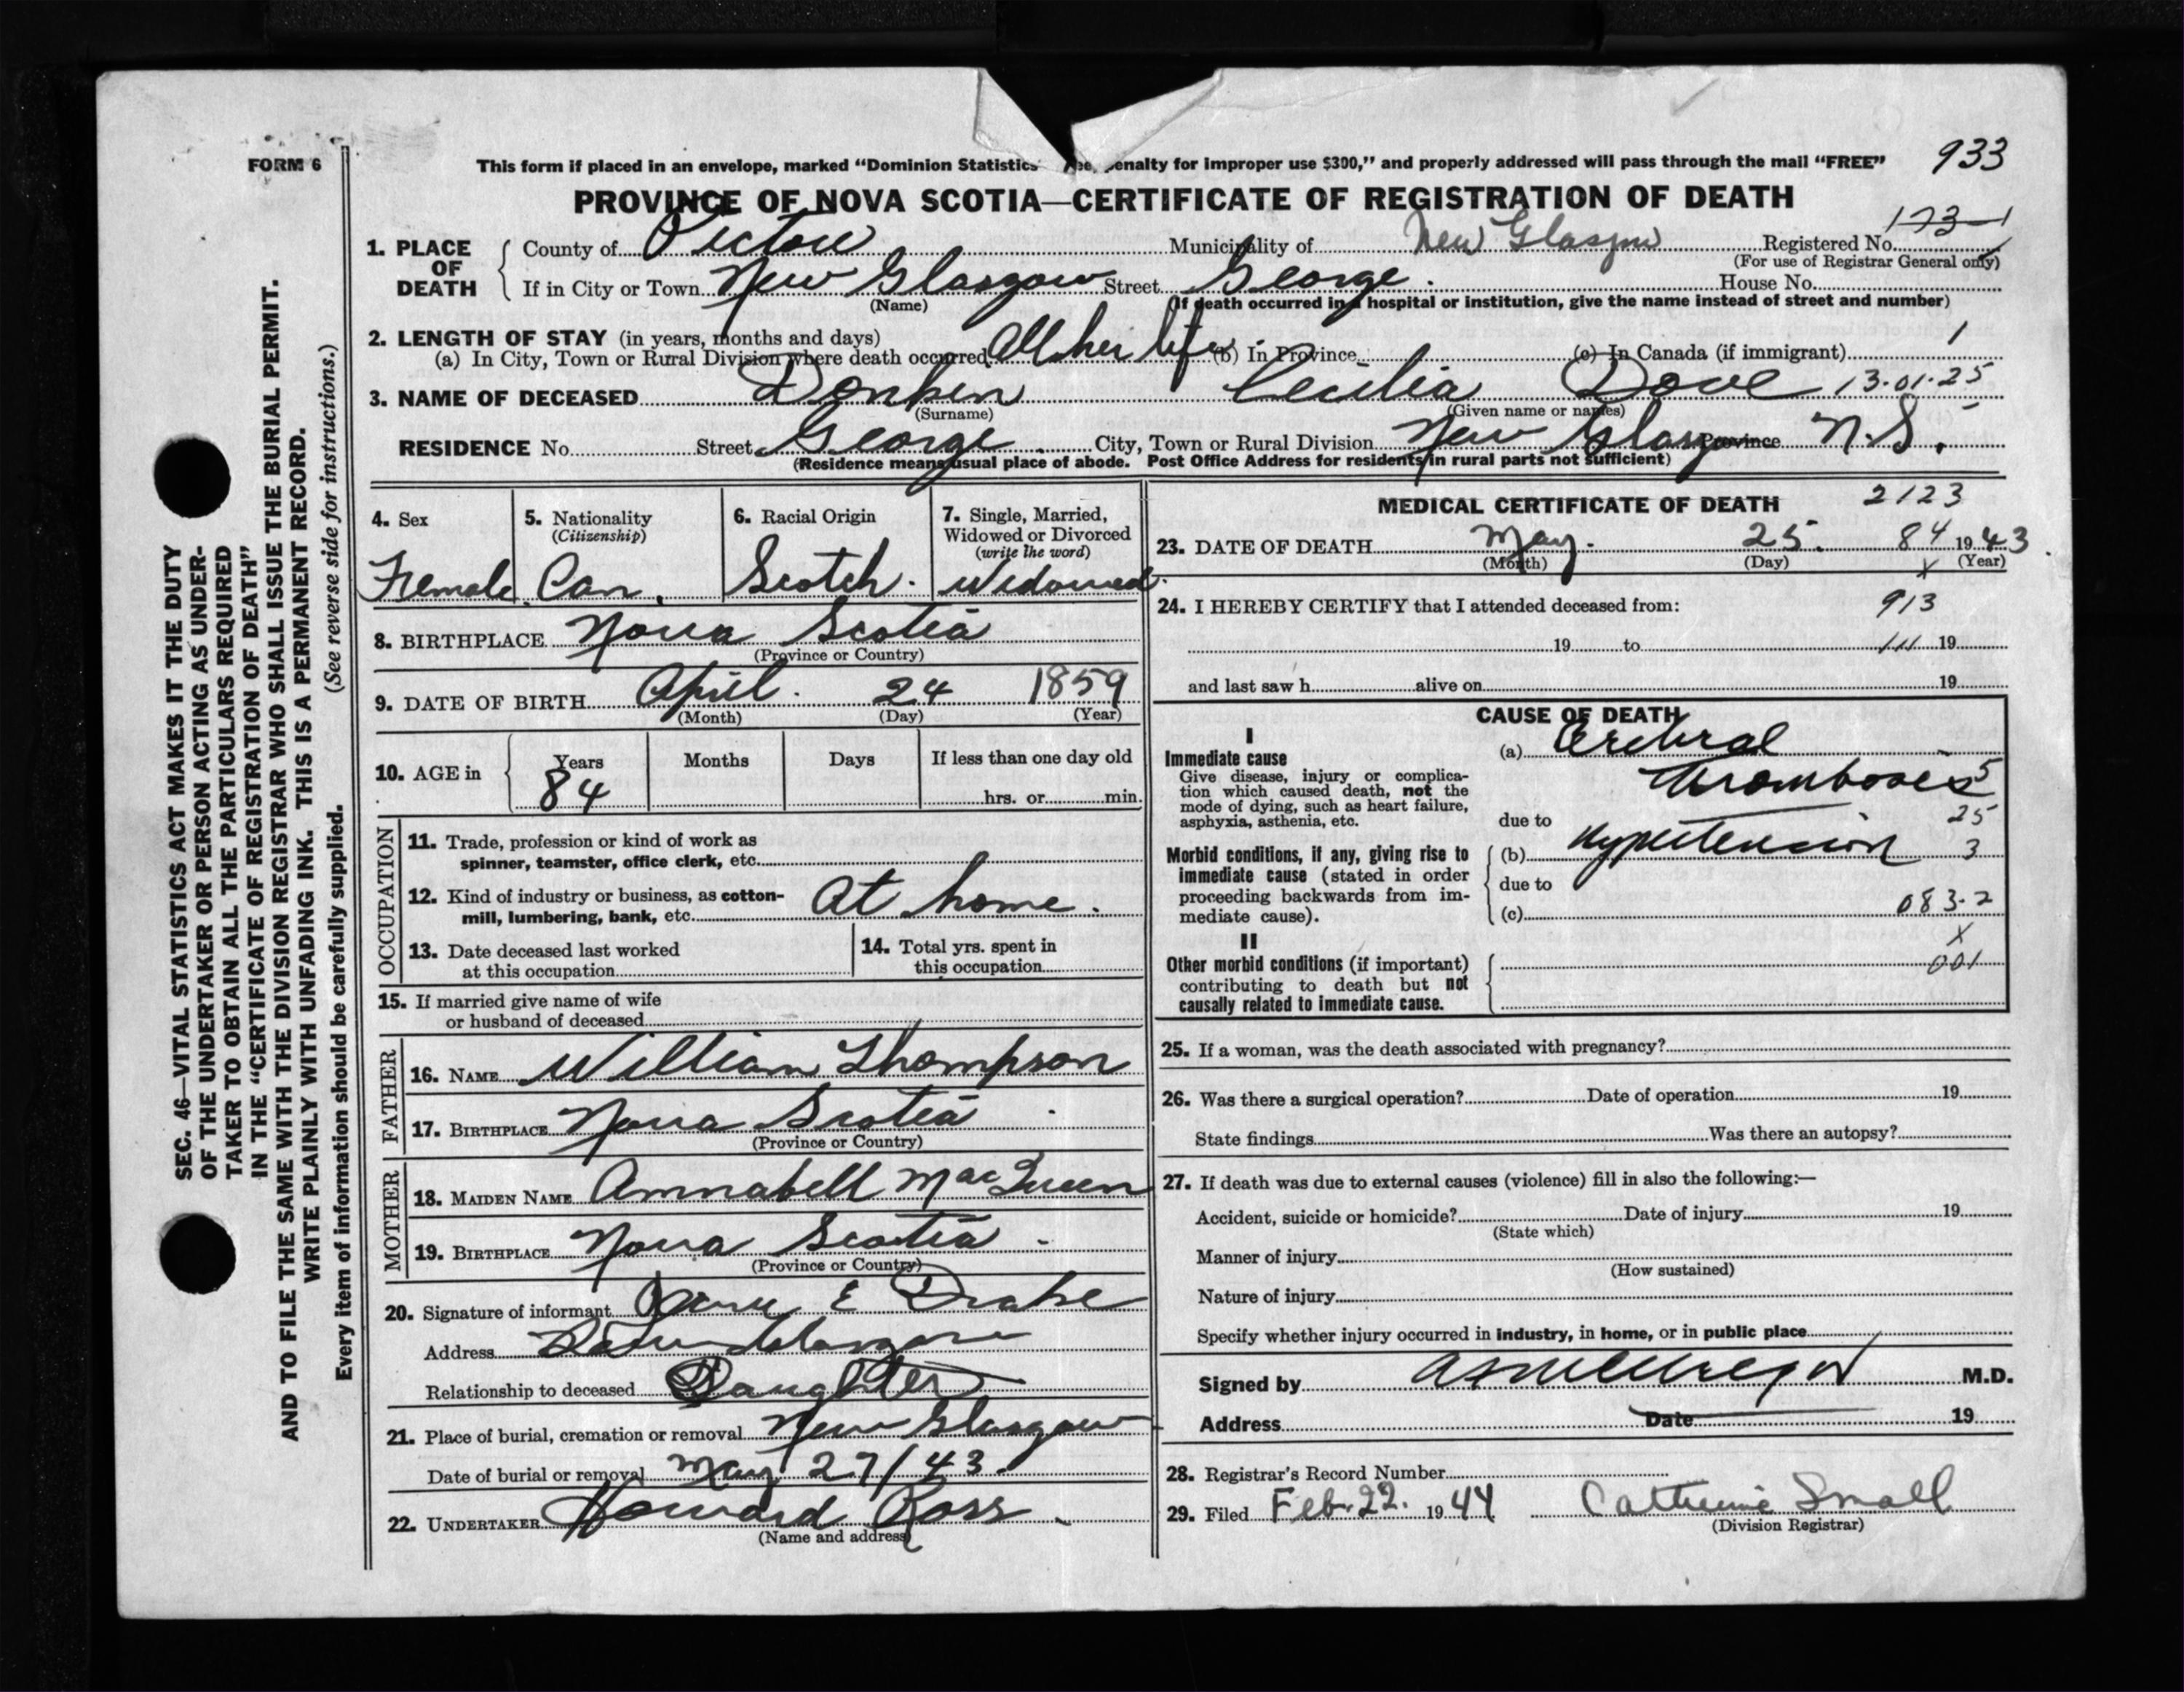 FORM 6
This form if placed in an envelope, marked “Dominion Statistics Free, Penalty for improper use $300,” and properly addressed will pass through the mail “FREE” 933
PROVINCE OF NOVA SCOTIA—CERTIFICATE OF REGISTRATION OF DEATH
173-1
1. PLACE OF DEATH County of Pictou Municipality of New Glasgow Registered No.
(For use of Registrar General only)
If in City or Town New Glasgow Street George. House No.
(Name) (If death occurred in a hospital or institution, give the name instead of street and number)
2. LENGTH OF STAY (in years, months and days)
(a) In City, Town or Rural Division where death occurred All her life. (b) In Province (c) In Canada (if immigrant) 1
3. NAME OF DECEASED Donkin Cecilia Dove 13.01.25
(Surname) (Given name or names)
RESIDENCE No. Street George City, Town or Rural Division New Glasgow Province N.S.
(Residence means usual place of abode. Post Office Address for residents in rural parts not sufficient)
4. Sex Female
5. Nationality (Citizenship) Can.
6. Racial Origin Scotch.
7. Single, Married, Widowed or Divorced (write the word) Widowed.
8. BIRTHPLACE Nova Scotia
(Province or Country)
9. DATE OF BIRTH April. 24 1859
(Month) (Day) (Year)
10. AGE in Years 84 Months Days If less than one day old
hrs. or min.
OCCUPATION
11. Trade, profession or kind of work as
spinner, teamster, office clerk, etc.
12. Kind of industry or business, as cotton-
mill, lumbering, bank, etc. At home.
13. Date deceased last worked
at this occupation
14. Total yrs. spent in
this occupation
15. If married give name of wife
or husband of deceased
FATHER
16. NAME William Thompson
17. BIRTHPLACE Nova Scotia
(Province or Country)
MOTHER
18. MAIDEN NAME Annabell MacQueen
19. BIRTHPLACE Nova Scotia
(Province or Country)
20. Signature of informant E Drake
Address New Glasgow
Relationship to deceased Daughter
21. Place of burial, cremation or removal New Glasgow
Date of burial or removal May 27/43.
22. UNDERTAKER Howard Ross.
(Name and address)
MEDICAL CERTIFICATE OF DEATH 2123
23. DATE OF DEATH May. 25. 84 1943
(Month) (Day) X (Year)
24. I HEREBY CERTIFY that I attended deceased from: 913
19 to 111 19
and last saw h alive on 19
CAUSE OF DEATH
I
Immediate cause (a) Cerebral
Give disease, injury or complica-
tion which caused death, not the
mode of dying, such as heart failure,
asphyxia, asthenia, etc.
Thrombosis 5
due to 25
Morbid conditions, if any, giving rise to
immediate cause (stated in order
proceeding backwards from im-
mediate cause).
(b) Hypertension 3
due to
(c) 083-2
II X
Other morbid conditions (if important)
contributing to death but not
causally related to immediate cause.
001
25. If a woman, was the death associated with pregnancy?
26. Was there a surgical operation? Date of operation 19
State findings Was there an autopsy?
27. If death was due to external causes (violence) fill in also the following:—
Accident, suicide or homicide? Date of injury 19
(State which)
Manner of injury
(How sustained)
Nature of injury
Specify whether injury occurred in industry, in home, or in public place
Signed by M.D.
Address Date 19
28. Registrar's Record Number
29. Filed Feb. 22. 1944 Catherine Small
(Division Registrar)
SEC. 46—VITAL STATISTICS ACT MAKES IT THE DUTY
OF THE UNDERTAKER OR PERSON ACTING AS UNDER-
TAKER TO OBTAIN ALL THE PARTICULARS REQUIRED
IN THE “CERTIFICATE OF REGISTRATION OF DEATH”
AND TO FILE THE SAME WITH THE DIVISION REGISTRAR WHO SHALL ISSUE THE BURIAL PERMIT.
WRITE PLAINLY WITH UNFADING INK. THIS IS A PERMANENT RECORD.
Every item of information should be carefully supplied. (See reverse side for instructions.)